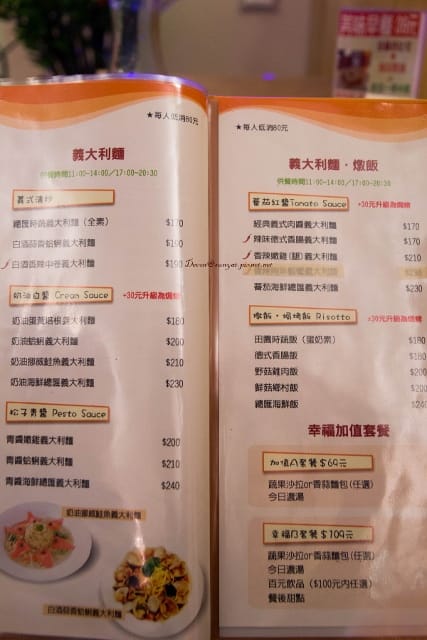 ★每人低消80元
義大利麵
供餐時間11:00~14:00/17:00~20:30
義式清炒
總匯時蔬義大利麵(全素) $170
白酒蒜香蛤蜊義大利麵 $190
白酒香辣中卷義大利麵 $190
奶油白醬 Cream Sauce +30元升級為焗烤
奶油蛋黃培根義大利麵 $180
奶油蛤蜊義大利麵 $200
奶油挪威鮭魚義大利麵 $210
奶油海鮮總匯義大利麵 $230
松子青醬 Pesto Sauce
青醬嫩雞義大利麵 $200
青醬蛤蜊義大利麵 $210
青醬海鮮總匯義大利麵 $240
奶油挪威鮭魚義大利麵
白酒蒜香蛤蜊義大利麵
★每人低消80元
義大利麵・燉飯
供餐時間11:00~14:00/17:00~20:30
蕃茄紅醬Tomato Sauce +30元升級為焗烤
經典義式肉醬義大利麵 $170
辣味德式香腸義大利麵 $170
香辣嫩雞(腿)義大利麵 $210
蕃茄海鮮總匯義大利麵 $230
燉飯・焗烤飯 Risotto +30元升級為焗烤
田園時蔬飯(蛋奶素) $180
德式香腸飯 $180
野菇雞肉飯 $200
鮮菇鄉村飯 $200
總匯海鮮飯
幸福加值套餐
加值A套餐$69元
蔬果沙拉or香蒜麵包(任選)
今日濃湯
幸福B套餐$109元
蔬果沙拉or香蒜麵包(任選)
今日濃湯
百元飲品($100元內任選)
餐後甜點